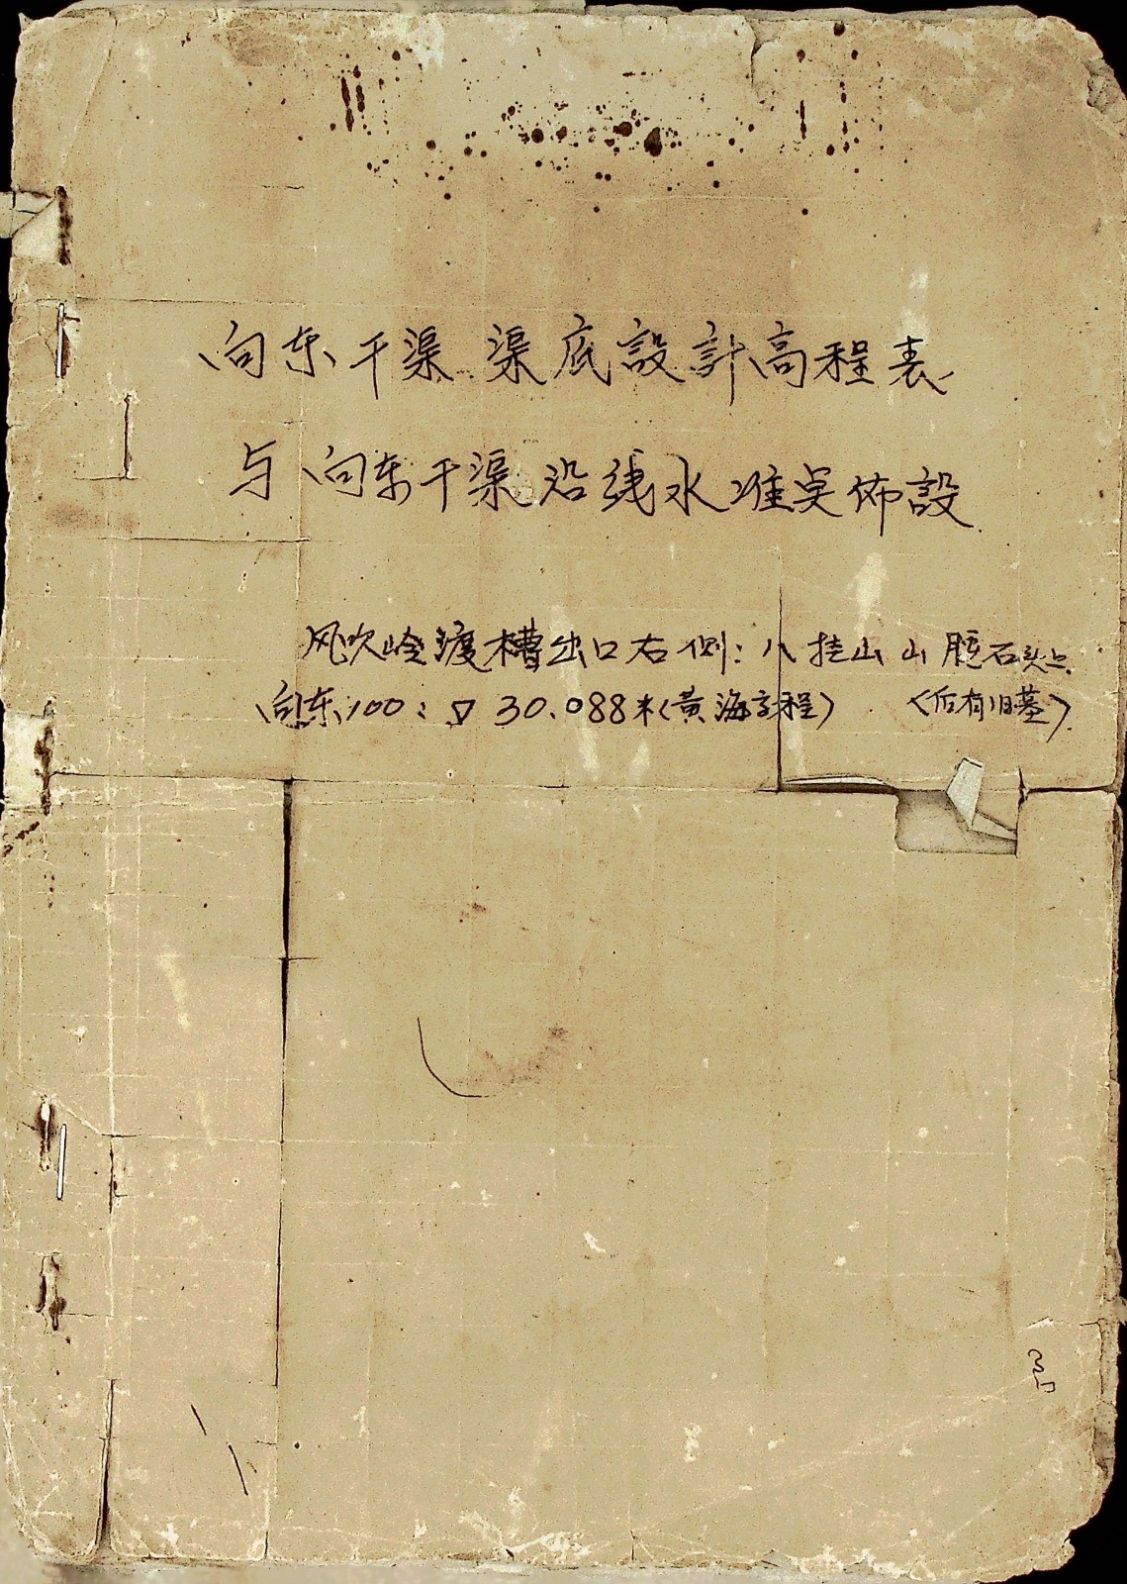 向东干渠 渠底設計高程表
与向东干渠沿线水准点佈設
风吹岭渡槽出口右侧：八挂山山腰石头上
向东100：▽ 30.088米（黄海高程） 〈后有旧墓〉